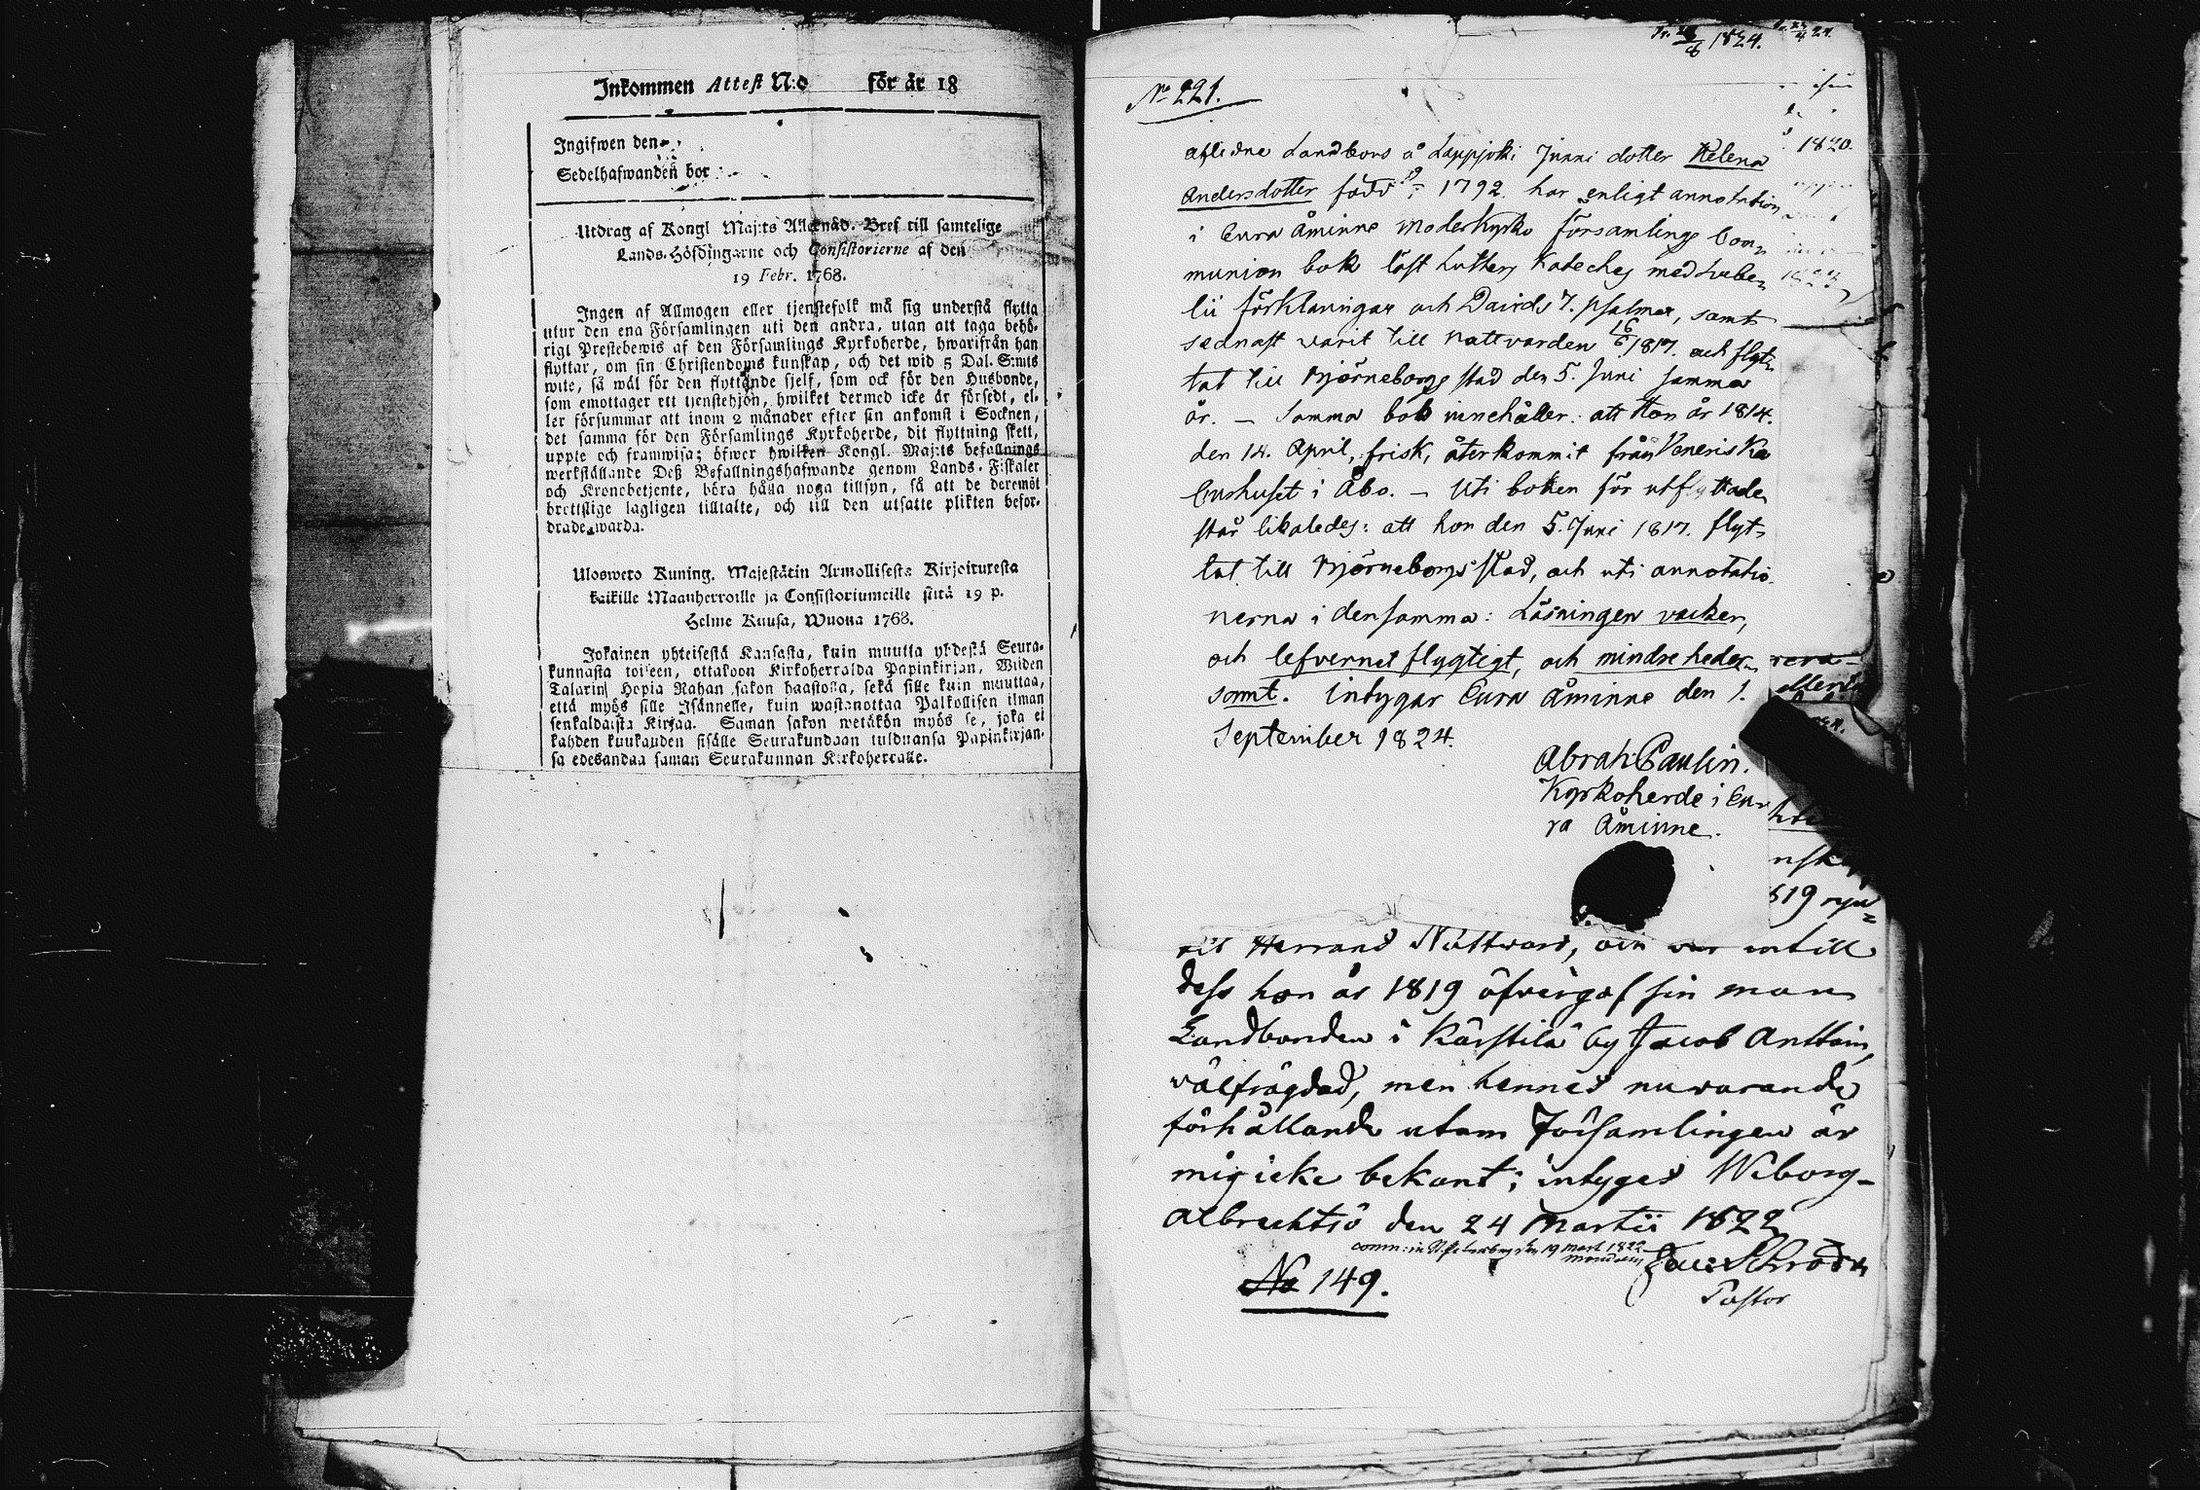 Inkommen Attest N:o för år 18
Ingifwen den
Sedelhafwanden bor
Utdrag af Kongl Maj:ts Allernåd. Bref till samtelige
Lands-Höfdingarne och Consistorierne af den
19 Febr. 1768.
Ingen af Allmogen eller tjenstefolk må sig understå flytta
utur den ena Församlingen uti den andra, utan att taga behö-
rigt Prestebewis af den Församlings Kyrkoherde, hwarifrån han
flyttar, om sin Christendoms kunskap, och det wid 5 Dal. S:mts
wite, så wäl för den flyttande sjelf, som ock för den Husbonde,
som emottager ett tjenstehjon, hwilket dermed icke är försedt, el-
ler försummar att inom 2 månader efter sin ankomst i Socknen,
det samma för den Församlings Kyrkoherde, dit flyttning skett,
uppte och framwisa; öfwer hwilken Kongl. Maj:ts befallnings
werkställande Deß Befallningshafwande genom Lands-Fiskaler
och Kronobetjente, böra hålla noga tillsyn, så att de deremot
brottslige lagligen tilltalte, och till den utsatte plikten befor-
drade warda.
Ulosweto Kuning. Majestätin Armollisesta Kirjoituresta
kaikille Maanherroille ja Consistoriumeille siitä 19 p.
Helme Kuusa, Wuona 1768.
Jokainen yhteisestä Kansasta, kuin muutta yhdestä Seura-
kunnasta toiseen, ottakoon Kirkoherralda Papinkirjan, Wiiden
Talarin Hopia Rahan sakon haastolla, sekä sille kuin muuttaa,
että myös sille Isännelle, kuin wastanottaa Palkollisen ilman
senkaldaista Kirjaa. Saman sakon wetäkön myös se, joka ei
kahden kuukauden sisälle Seurakundaan tulduansa Papinkirjan-
sa edesandaa saman Seurakunnan Kirkoherralle.
1824.
No 221.
1820.
aflidne Landbons å Lappjoki Junni dotter Helena
Andersdotter född 1792 har enligt annotation
i Eura Åminne Moderkyrko församlings Com-
munion bok läst Luthers Kateches med Swebe-
lii förklaringar och Davids 7. psalmer, samt
sednast warit till Nattvarden 1817. och flyt-
tat till Björneborgs stad den 5. Juni samma
år. – Samma bok innehåller: att Hon år 1814.
den 14. April, frisk, återkommit från Veneriska
Curhuset i Åbo. – Uti boken för utflyttade
står likaledes: att hon den 5. Juni 1817. flyt-
tat till Björneborgs stad, och uti annotatio-
nerna i densamma: Läsningen vacker,
och lefvernet flygtigt, och mindre heder-
samt. Intygar Eura Åminne den 1.
September 1824.
Abrah: Paulin.
Kyrkoherde i Eu-
ra Åminne.
Herrans Nattward, och war intill
dess hon år 1819 öfvergaf sin man
Landbonden i Kärstilä by Jacob Anttoin,
wälfrägdad, men hennes nuwarande
förhållande utom Församlingen är
mig icke bekant; intygas Wiborg
den 24 Martii 1822
Pastor
No 149.